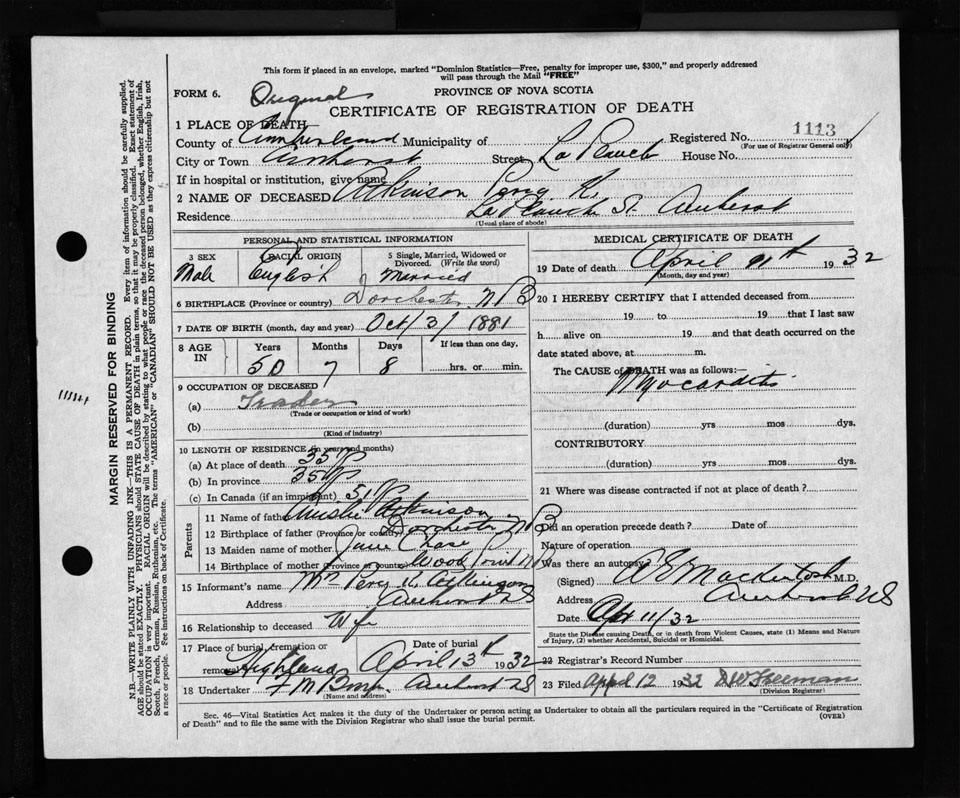 This form if placed in an envelope, marked "Dominion Statistics—Free, penalty for improper use, $300," and properly addressed
will pass through the Mail "FREE"
FORM 6. Original PROVINCE OF NOVA SCOTIA
CERTIFICATE OF REGISTRATION OF DEATH
1 PLACE OF DEATH—
County of Cumberland Municipality of Registered No. 1113
(For use of Registrar General only)
City or Town Amherst Street La Planch House No.
If in hospital or institution, give name
2 NAME OF DECEASED Atkinson Percy K.
Residence La Planche St. Amherst
(Usual place of abode)
PERSONAL AND STATISTICAL INFORMATION
3 SEX RACIAL ORIGIN 5 Single, Married, Widowed or
Divorced. (Write the word)
Male English Married
6 BIRTHPLACE (Province or country) Dorchester N B
7 DATE OF BIRTH (month, day and year) Oct 3 1881
8 AGE IN Years Months Days If less than one day,
50 7 8 hrs. or min.
9 OCCUPATION OF DECEASED
(a) Trader
(Trade or occupation or kind of work)
(b)
(Kind of industry)
10 LENGTH OF RESIDENCE (in years and months)
(a) At place of death 35
(b) In province 35
(c) In Canada (if an immigrant) 51
Parents
11 Name of father Atkinson
12 Birthplace of father (Province or country) Dorchester N B
13 Maiden name of mother Jane Chase
14 Birthplace of mother (Province or country) Wood Point N B
15 Informant's name Mrs Percy K. Atkinson
Address Amherst N S
16 Relationship to deceased Wife
17 Place of burial, cremation or Date of burial
removal Highland April 13th 1932
18 Undertaker F M Amherst N S
(Name and address)
MEDICAL CERTIFICATE OF DEATH
19 Date of death April 11th 1932
(Month, day and year)
20 I HEREBY CERTIFY that I attended deceased from
19 to 19 that I last saw
h alive on 19 and that death occurred on the
date stated above, at m.
The CAUSE OF DEATH was as follows:—
Myocarditis
(duration) yrs mos. dys.
CONTRIBUTORY
(duration) yrs. mos. dys.
21 Where was disease contracted if not at place of death?
Did an operation precede death? Date of
Nature of operation
Was there an autopsy
(Signed) Mackintosh M.D.
Address Amherst N S
Date Apr 11/32
State the Disease causing Death, or in death from Violent Causes, state (1) Means and Nature
of Injury, (2) whether Accidental, Suicidal or Homicidal.
22 Registrar's Record Number
23 Filed April 12 1932 Freeman
(Division Registrar)
Sec. 46—Vital Statistics Act makes it the duty of the Undertaker or person acting as Undertaker to obtain all the particulars required in the "Certificate of Registration
of Death" and to file the same with the Division Registrar who shall issue the burial permit.
(OVER)
MARGIN RESERVED FOR BINDING
N.B.—WRITE PLAINLY WITH UNFADING INK—THIS IS A PERMANENT RECORD. Every item of information should be carefully supplied.
AGE should be stated EXACTLY. PHYSICIANS should STATE CAUSE OF DEATH in plain terms, so that it may be properly classified. Exact statement of
OCCUPATION is very important. RACIAL ORIGIN will be described by stating to what people or race the deceased person belonged, whether English, Irish,
Scotch, French, German, Russian, Ruthenian, etc. The terms "AMERICAN" or "CANADIAN" SHOULD NOT BE USED as they express citizenship but not
a race or people. Fee instructions on back of Certificate.